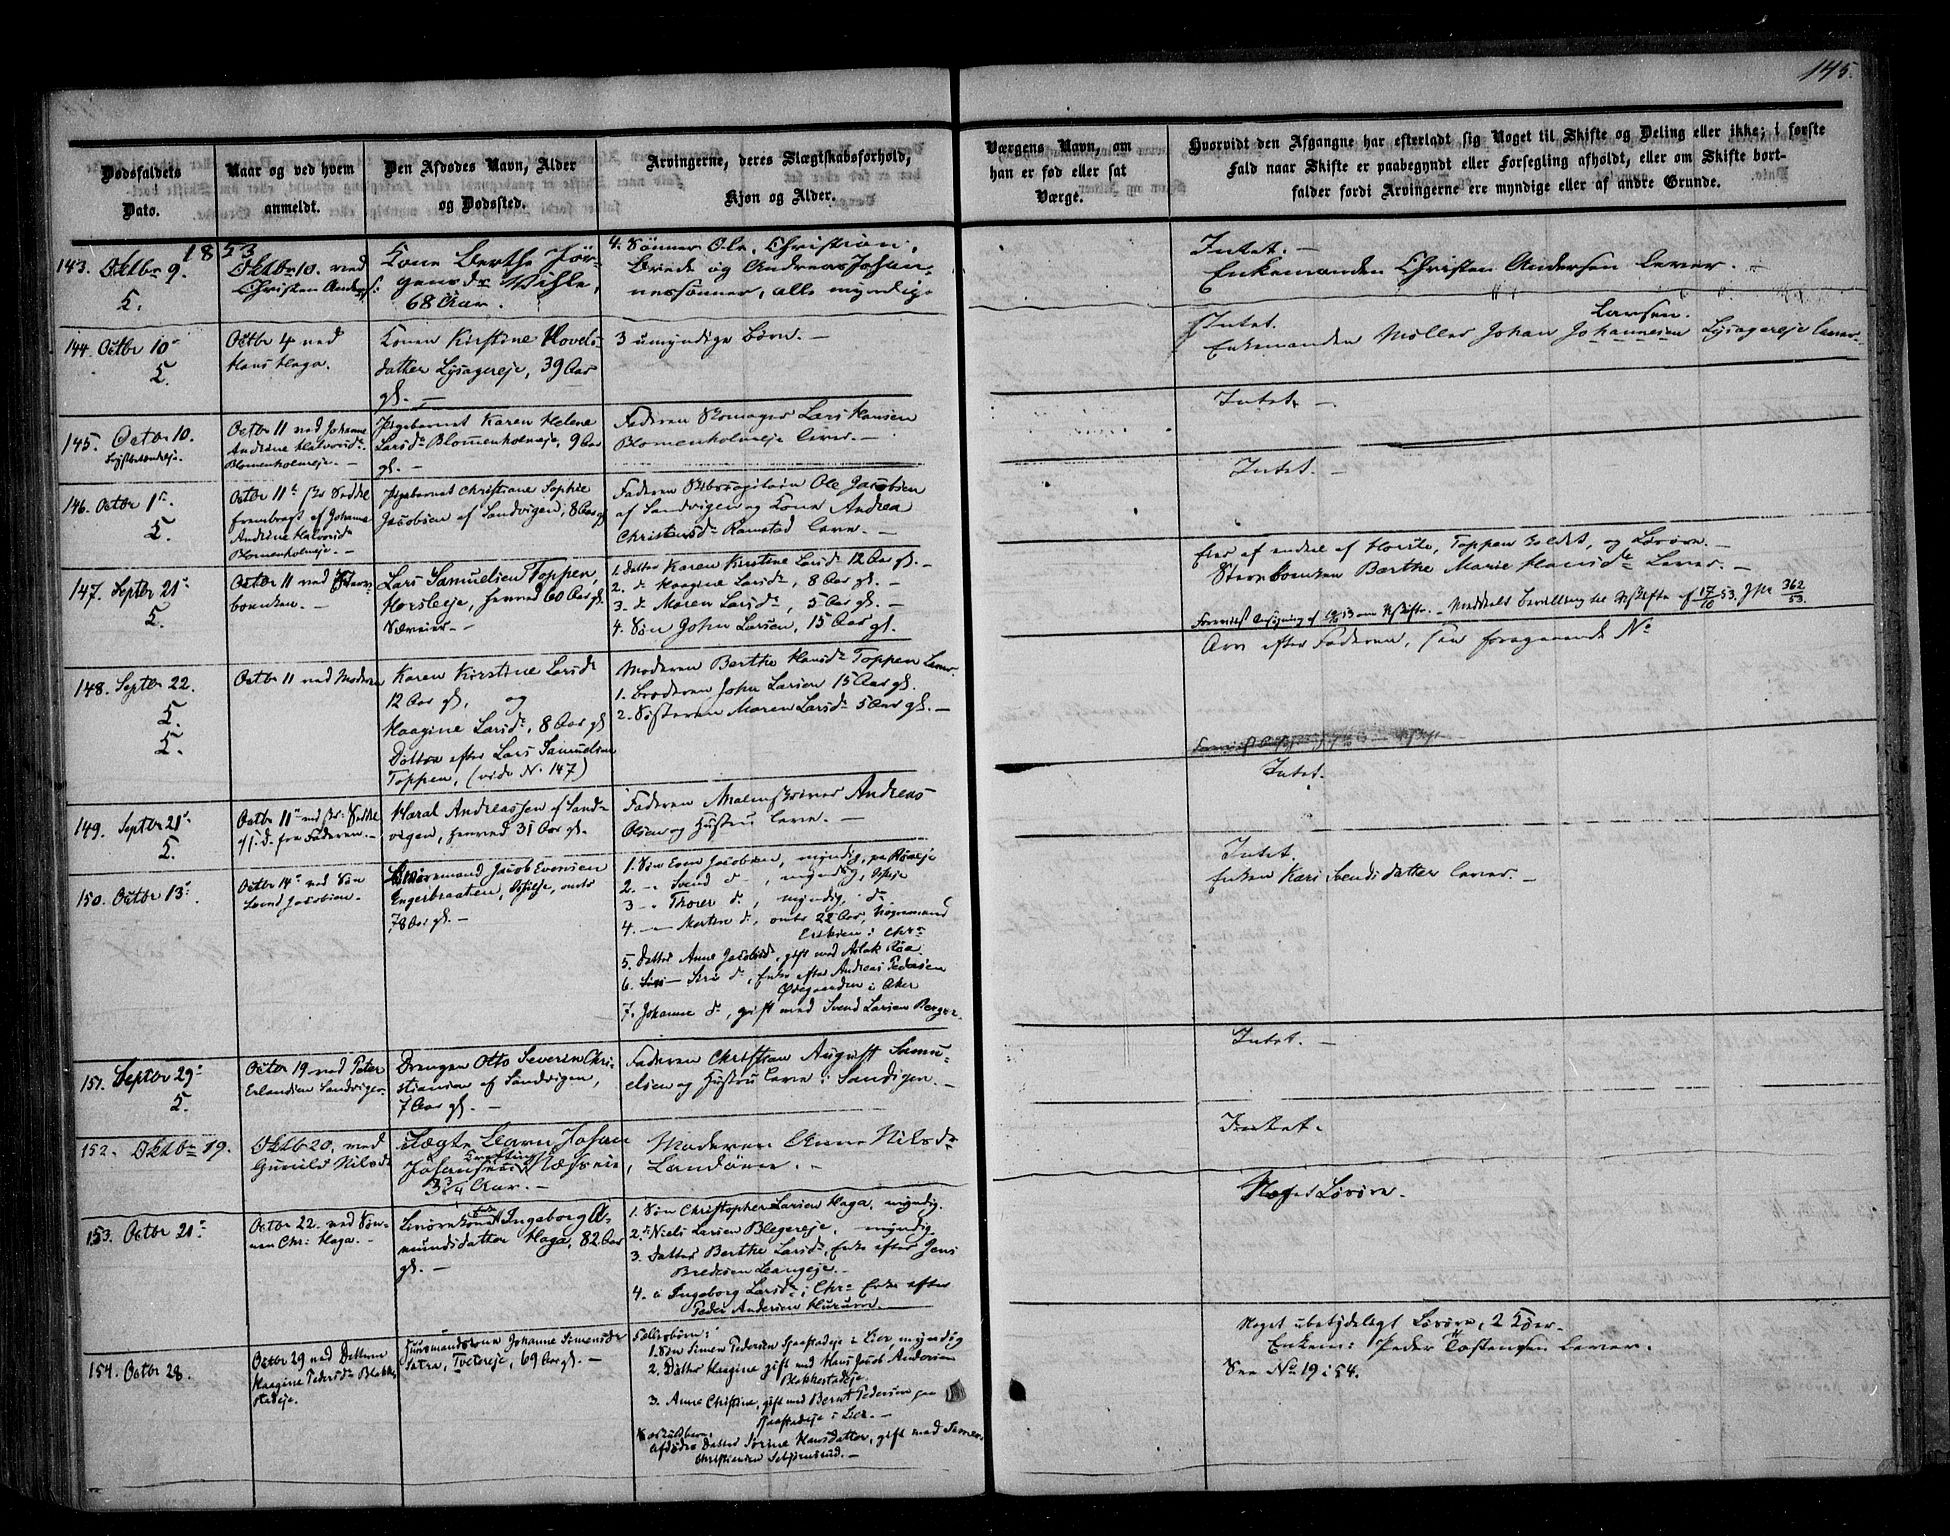 145.
Dødsfaldets
Dato.
Naar og ved hvem
anmeldt.
Den Afdødes Navn, Alder
og Dødssted.
Arvingerne, deres Slægtskabsforhold,
Kjøn og Alder.
Værgens Navn, om
han er fød eller sat
Værge.
Hvorvidt den Afgangne har efterladt sig Noget til Skifte og Deling eller ikke; i første
Fald naar Skifte er paabegyndt eller Forsegling afholdt, eller om Skifte bort-
falder fordi Arvingerne ere myndige eller af andre Grunde.
1853
143. Oktbr 9.
Oktbr 10. ved
Christen Anders:
Kone Berthe Jør-
gensdr Wisle,
68 Aar.
4. Sønner Ole, Christian,
Brede og Andreas Johan-
nessønner, alle myndige
Intet. –
Enkemanden Christen Andersen lever. –
144. Octbr 10
Octbr 4 ved
Hans Haga.
Konen Kirstine Hovels-
datter Lysagereje, 39 Aar
gl. –
3 umyndige Børn. –
Intet.
Larsen.
Enkemanden Møller Johan Johannesen Lysagereje lever.
145. Octbr 10.
Octbr 11 ved Johanne
Andrine Halvorsdr
Blomenholmeje. –
Pigebarnet Karen Helene
Larsdr Blomenholmeje, 9 Aar
gl. –
Faderen Skomager Lars Hansen
Blomenholmeje lever. –
Intet. –
146. Octbr 1
Octbr 11
frembragt af Johanne
Andrine Halvorsdr
Blomenholmeje. –
Pigebarnet Christiane Sophie
Jacobsen af Sandvigen, 8 Aar gl
Faderen Skibscapitain Ole Jacobsen
af Sandvigen og Kone Andrea
Christensdr Ramstad leve. –
Intet. –
147. Septbr 21
Octbr 11 ved Sterv-
boenken. –
Lars Samuelsen Toppen,
Horsleje, henved 60 Aar gl.
1. Datter Karen Kirstine Larsdr 12 Aar gl. –
2. dr Maagine Larsdr, 8 Aar gl. –
3. dr Maren Larsdr, 5 Aar gl. –
4. Søn John Larsen, 15 Aar gl.
Stervboenken Berthe Marie Hansdr lever. –
Arv efter Faderen, see foregaaende No
148. Septbr 22.
Octbr 11 ved Moderen
Karen Kirstine Larsdr
12 Aar gl, og
Maagine Larsdr, 8 Aar gl
Døttre efter Lars Samuelsen
Toppen, (vide N. 147)
Moderen Berthe Hansdr Toppen lever.
1. Broderen John Larsen 15 Aar gl.
2. Søsteren Maren Larsdr 5 Aar gl. –
149. Septbr 21
Octbr 11
fra Faderen. –
Haral Andreassen af Sand-
vigen, henved 31 Aar gl.
Faderen Andreas
Olsen og Hustru leve. –
Intet.
150. Octbr 13
Octbr 14 ved Søn
Svend Jacobsen.
Jacob Evensen
Engerbraaten, 
78 Aar gl. –
1. Søn Even Jacobsen, myndig, paa
2. – Svend dr, myndig,
3. – Thorer dr, myndig, dr
4. – Morten dr, omtr 22 Aar,
Eriksen i Chra
5. Datter Anne Jacobsdr, gift med Aslak Røa
6. – Siri dr, Enke efter Andreas Pedersen
Ødegaarden i Aker
7. Johanne dr, gift med Svend Larsen Berger.
Intet.
Enken Kari Svendsdatter lever. –
151. Septbr 29
Octbr 19 ved Peter
Erlandsen Sandvigen
Drengen Otto Severin Chri-
stiansen af Sandvigen,
7 Aar gl. –
Faderen Christian August Samu-
elsen og Hustru leve i Sandvigen. –
Intet. –
152. Oktbr 19.
Oktb 20, ved
Gunild Nilsdr
Uægte Barn Johan
Johansen Næseie,
3 3/4 Aar. –
Moderen Anne Nilsdr
Landøen. –
Intet. –
153. Octbr 21
Octbr 22. ved Søn-
nen Chr: Haga. –
Ingeborg A-
mundsdatter Haga, 82 Aar
gl. –
1. Søn Christopher Larsen Haga, myndig.
2. Niels Larsen Blegereje, – myndig
3. Datter Berthe Larsdr, Enke efter Jens
Bredesen Leangeje. –
4. Ingeborg Larsdr i Chra Enke efter
Peder Andersen Hurum. –
Noget Løsøre.
154. Octbr 28.
Octbr 29 ved Datteren
Maagine Pedersdr Blakke-
stadeje.
Huusmandskone Johanne Simensdr
Tveterje, 69 Aar gl. –
Fællesbørn:
1. Søn Simen Pedersen i Lier, myndig
2. Datter Maagine gift med Hans Jacob Andersen
Blakkestadeje.
3. Anne Christine, gift med Bernt Pedersen paa
i Lier. –
Særkuldbarn:
Afdødes Datter Sørine Hansdatter, gift med
Christiansen
Noget ubetydeligt Løsøre, 2 Køer.
Enkem: Peder Tostensen lever.
See No 19 i 54.